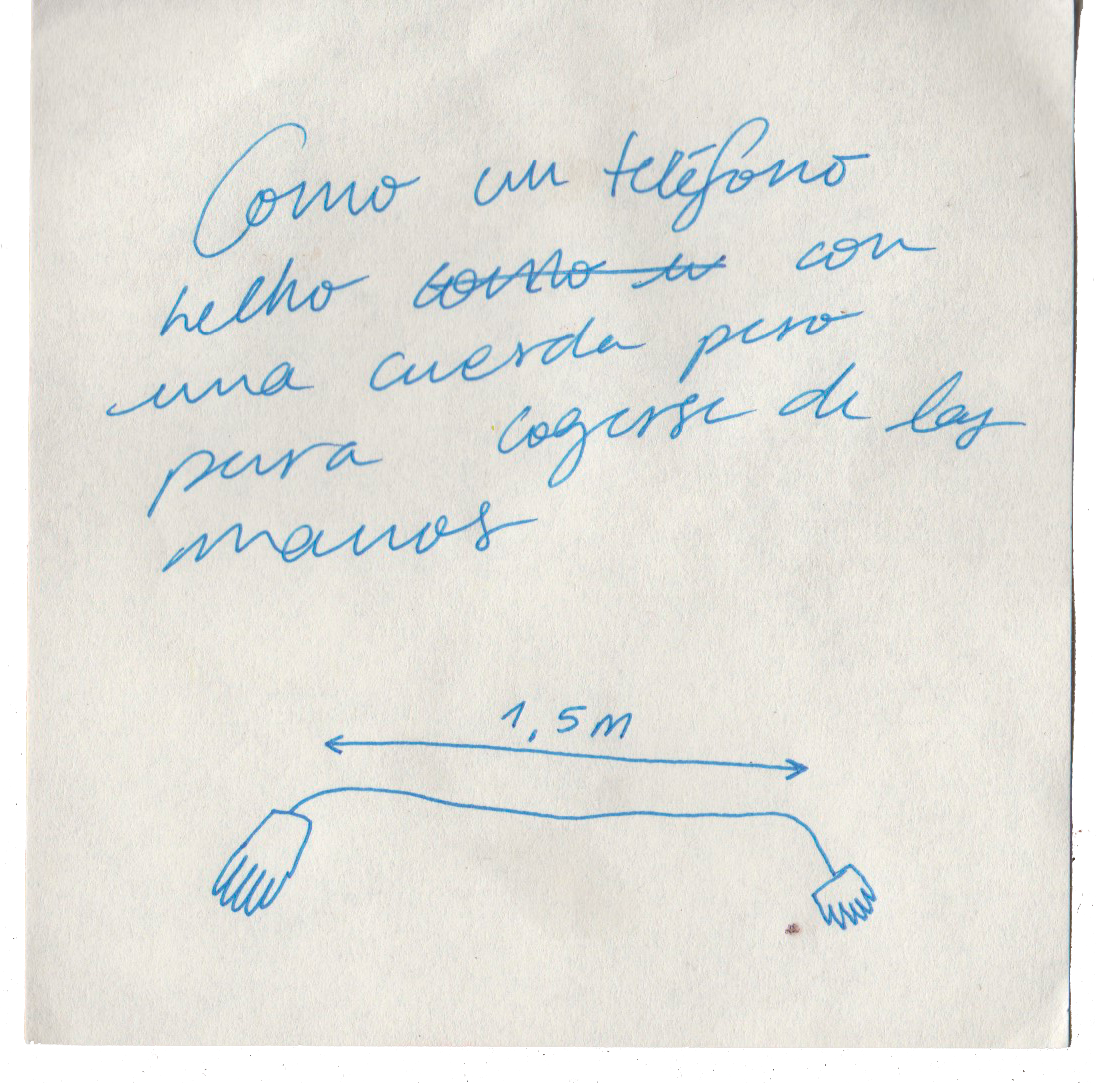 Como un teléfono
helho como u con
una cuerda pero
para cogerse de las
manos
1,5m